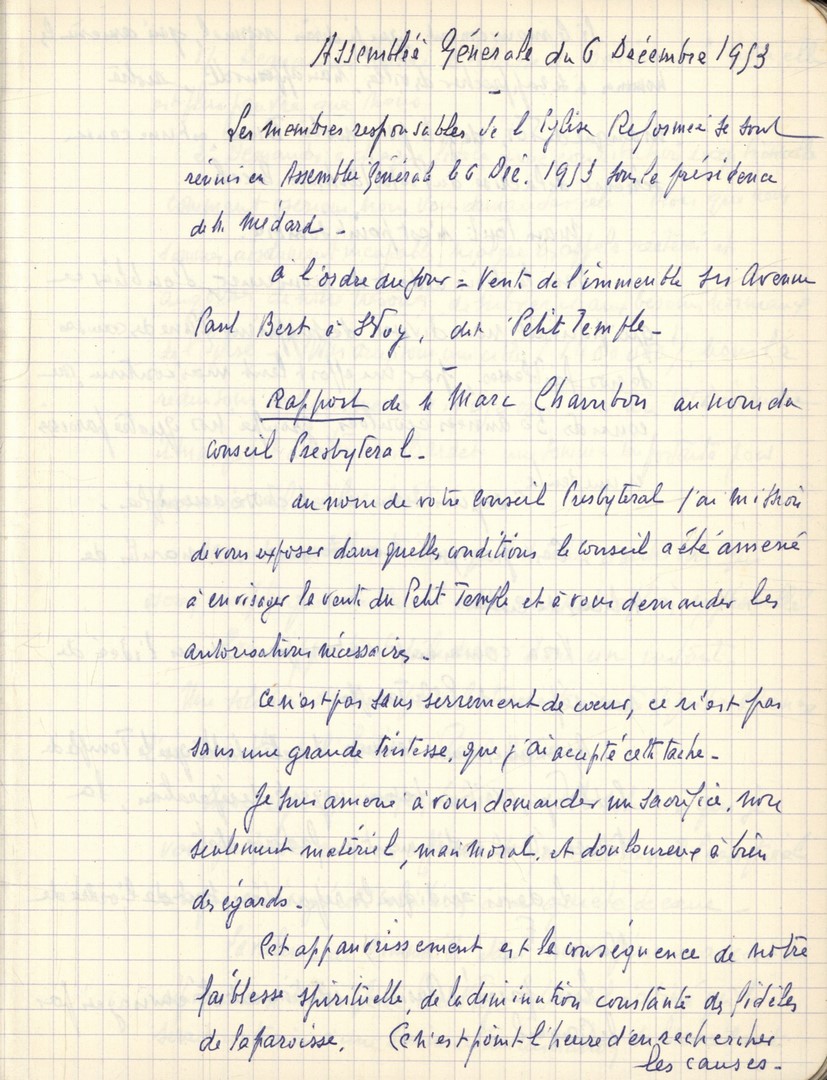 Assemblée Générale du 6 Décembre 1953
-
Les membres responsables de l'Eglise Reformée se sont
réunis en Assemblée Générale le 6 Déc. 1953 sous la présidence
de M. Médard -
à l'ordre du jour = Vente de l'immeuble sis Avenue
Paul Bert à Ste Foy, dit Petit Temple -
Rapport de M. Marc Chambon au nom du
Conseil Presbytéral -
au nom de votre Conseil Presbytéral j'ai mission
de vous exposer dans quelles conditions le conseil a été amené
à envisager la vente du Petit Temple et à vous demander les
autorisations nécessaires -
Ce n'est pas sans serrement de coeur, ce n'est pas
sans une grande tristesse, que j'ai accepté cette tache -
Je suis amené à vous demander un sacrifice, non
seulement matériel, mais moral, et douloureux à bien
des égards -
Cet appauvrissement est la conséquence de notre
faiblesse spirituelle, de la diminution constante des fidèles
de la paroisse. Ce n'est point l'heure d'en rechercher
les causes -